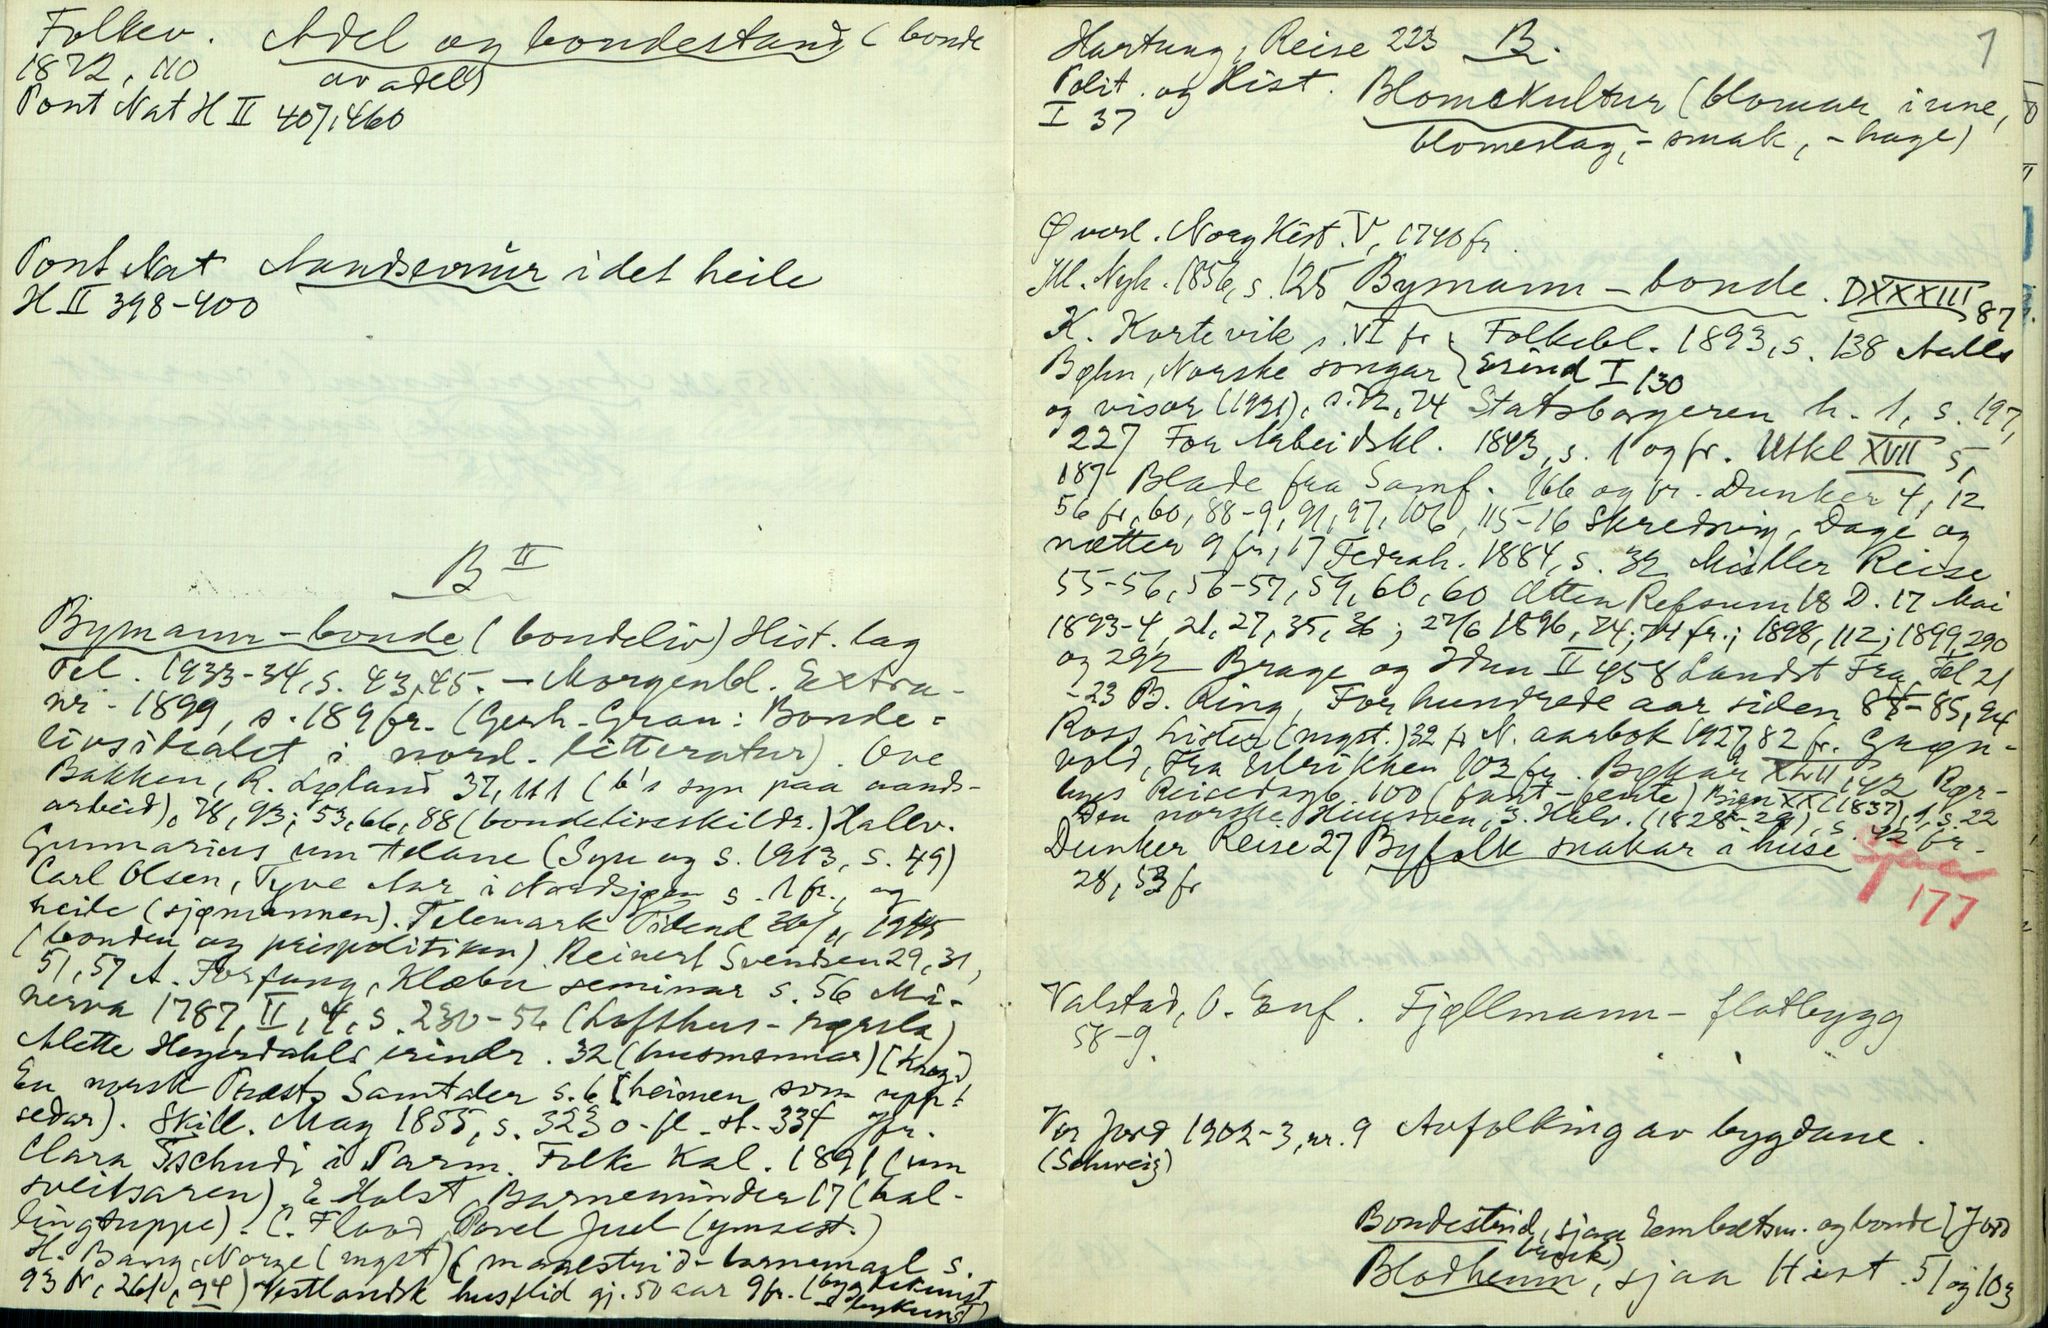 Folkev. Adel og bondestand (bonde
1872, 110 av adel)
Pont Nat H II 407, 460
Pont Nat Aandsevnur i det heile
H II 398-400
B II
Bymann - bonde (bondeliv) Hist. lag
Tel. 1933-34, s. 43, 45. - Morgenbl. Extra-
nr. 1899, s. 189 fr. (Gerh. Gran: Bonde-
livsidealet i nord. litteratur). Ove
Bakken, R. Løland 37, 111 (b's syn paa aands-
arbeid), 78, 93; 53, 66, 88 (bondelivsskildr.) Hallv.
Gunnarius um Telane (Syn og s. 1913, s. 49)
Carl Olsen, Tyve Aar i Nordsjøen s. 1 fr., og
heile (sjømannen). Telemark Tidend 1945
(bonden og prispolitiken) Reinert Svendsen 29, 31,
51, 57 A. Forfang, Klæbu seminar s. 56 Mi-
nerva 1787, II, 4, s. 230-56 (Lofthus-rørsla)
Alette Heyerdahls erindr. 32 (husmannar) [Krog:]
En norsk Præsts Samtaler s. 6 [heimen som upp-
sedar). Skill. Mag 1855, s. 323 o. fl. st. 334 Jfr.
Clara Tschudi i Parm. Folke Kal. 1891 (um
sveitsaren) E Holst, Barneminder 17 (hal-
lingsuppe). C. Flood, Povel Juel (ymsest.)
H. Bang, Norge (mgst) (maalstrid-barnemaal s.
93 fr, 261, 94) Vestlandsk husflid gj. 50 aar 9 fr. (bygdekunst
- bykunst)
1
Hartung, Reise 223 B.
Polit. og Hist. Blomekultur (blomar inne,
I 37 blomeslag, - smak, - hage)
Øverl. Norg Hist. V, 1740 fr.
Ill. Nyh. 1856, s. 125 Bymann - bonde. DXXXIII 87
K. Kortevik s. VI fr Folkebl. 1893, s. 138 Aalls
Bøhn, Norske songar erind I 130
og visor (1931), s. 72, 74 Statsborgeren h. 1, s. 197,
227 For Arbeidskl. 1843, s. 1 og fr. Utkl XVII 5,
187 Blade fra Samf. 166 og fr. Dunker 4, 12
56 fr, 60, 88-9, 91, 97, 106, 115-16 Skredsvig, Dage og
nætter 9 fr, 17 Fedrah. 1884, s. 32 Müller Reise
55-56, 56-57, 59, 60, 60 Atten Refsum 18 D. 17 Mai
1893-4, 21, 27, 35, 36; 27/6 1896, 74; 74 fr.; 1898, 112; 1899, 290
og 292 Brage og Idun II 458 Landst Fra Tel 21
-23 B. Ring, For hundrede aar siden 84-85, 94
Ross Lister (mgst.) 32 fr N. aarbok 1927, 82 fr. Grøn-
vold, Fra Ulrikken 103 fr. Bykar XLII, 142 Rør-
byes Reisedagb. 100 (fant-fente) Bien XX (1837), 1, s. 22
Den norske Huusven, 3. Halv. (1828-29), s. 42 fr.
Dunker Reise 27 Byfolk snakar i huse Sjaa
28, 53 fr 177
Valstad, O. Enf. Fjøllmann - flatbygg
58-9.
Vor Jord 1902-3, nr. 9 Avfolking av bygdane.
(Schweiz)
Bondestrid, sjaa Embætsm. og bonde [Jord
bruk)
Blodhemn, sjaa Hist. 51 og 103